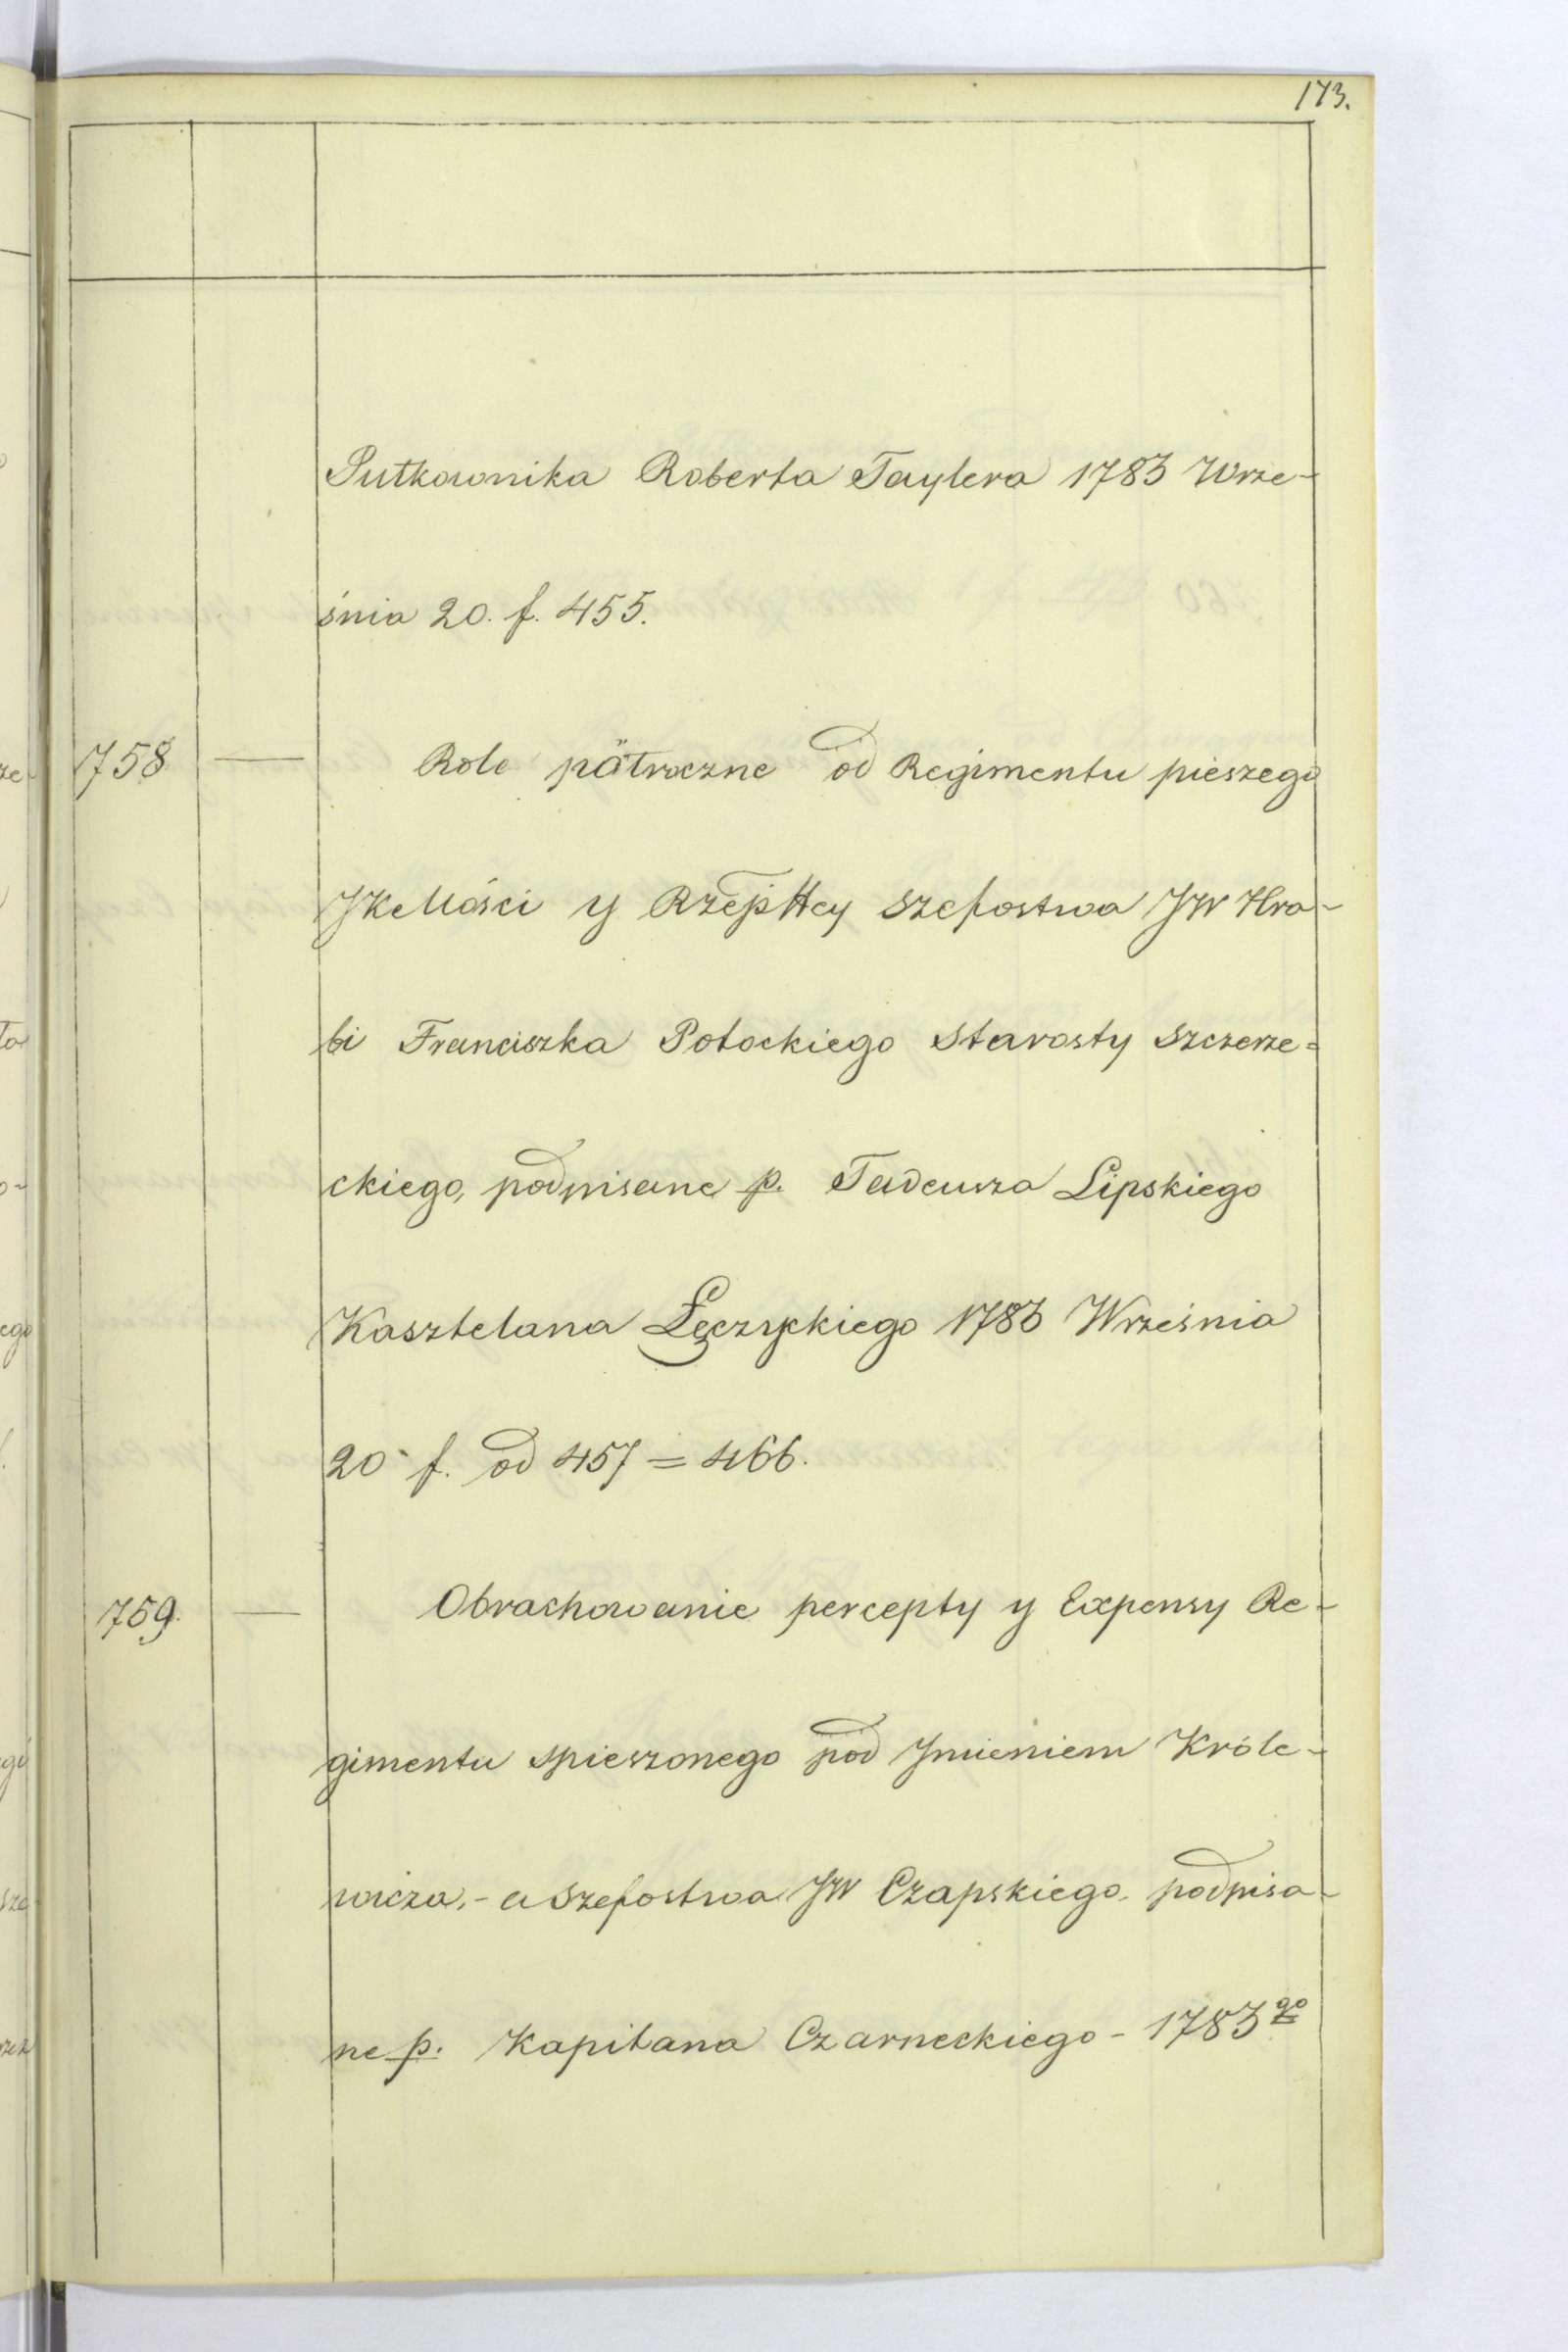 173.
Pułkownika Roberta Taylera 1783 Wrze-
śnia 20. f. 455.
758 — Role półroczne od Regimentu pieszego
JKeMości y Rzepttey Szefostwa JW Hra-
bi Franciszka Potockiego Starosty Szczerze=
ckiego, podpisane p. Tadeusza Lipskiego
Kasztelana Łęczyckiego 1783 Września
20 f. od 457 = 466.
759. — Obrachowanie percepty y Expensy Re-
gimentu spieszonego pod Jmieniem Króle-
wicza, - a Szefostwa JW Czapskiego. podpisa-
ne p. Kapitana Czarneckiego - 1783go